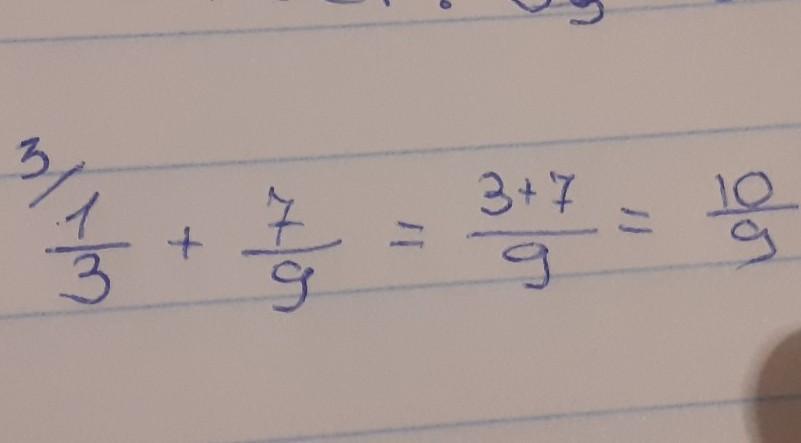 3/ 1/3 + 7/9 = 3+7/9 = 10/9